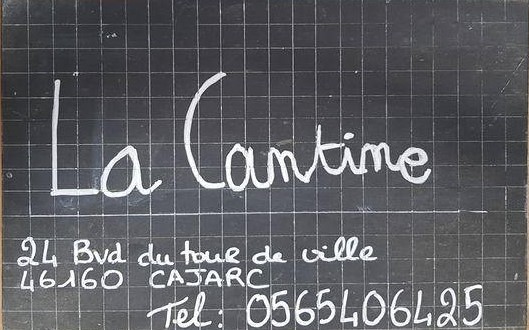 La Cantine
24 Bvd du tour de ville
46160 CAJARC
Tel: 0565406425